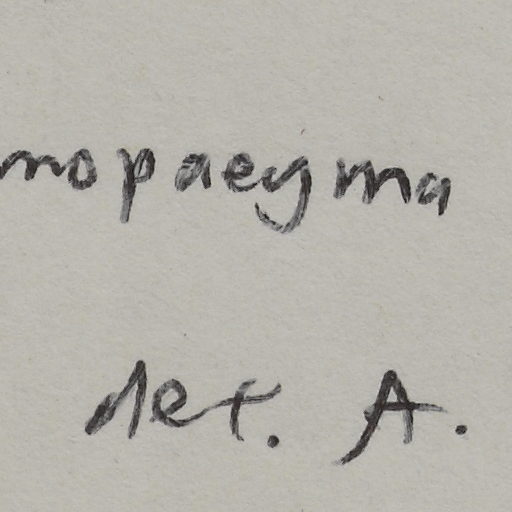 mopaegma
det. A.